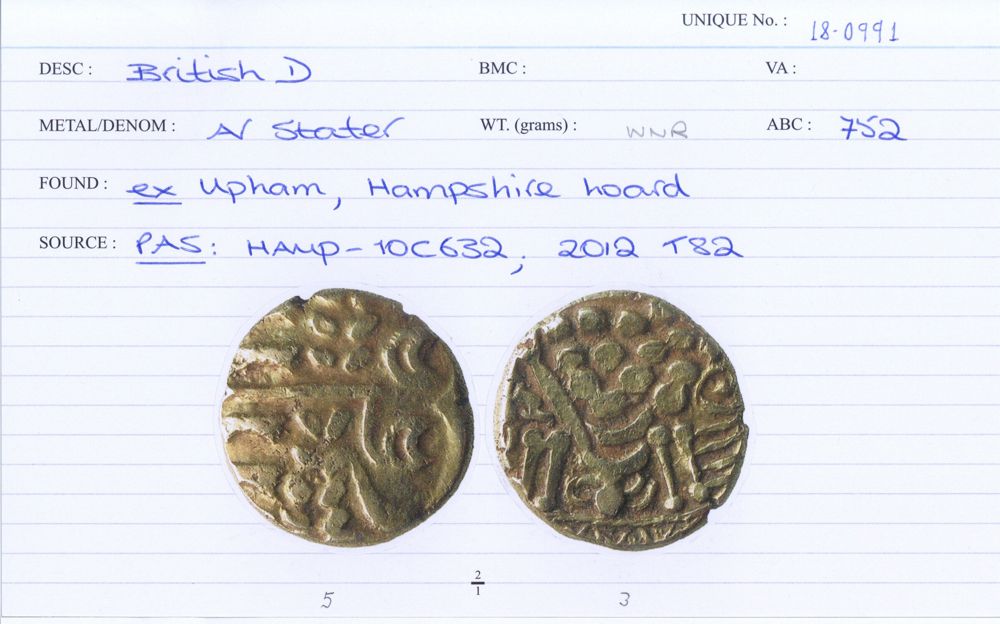 UNIQUE No. : 18-0991
DESC : British D BMC : VA :
METAL/DENOM : AV Stater WT. (grams) : WNR ABC : 752
FOUND : ex Upham, Hampshire hoard
SOURCE : PAS: HAMP-10C632, 2012 T82
2
1
5 3